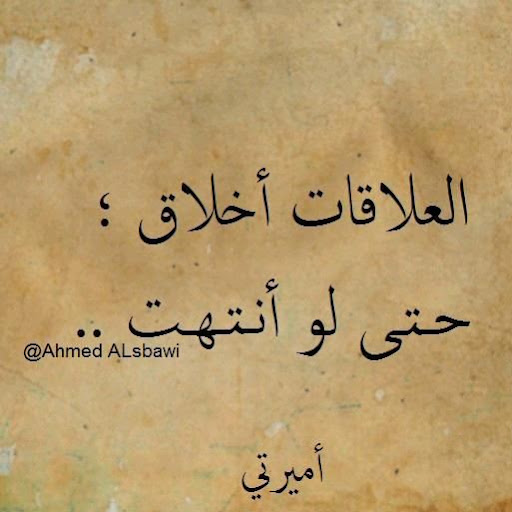 العلاقات أخلاق ؛
حتى لو أنتهت ..
@Ahmed ALsbawi
أميرتي